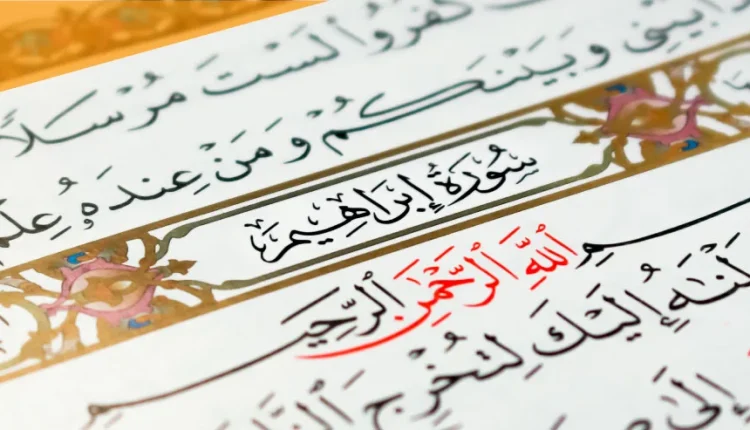 كَفَرُوا۟ لَسْتَ مُرْسَلًا
بَيْنِى وَبَيْنَكُمْ وَمَنْ عِندَهُۥ عِلْمُ
سُورَةُ إِبْرَاهِيمَ
ٱللَّهِ ٱلرَّحْمَٰنِ ٱلرَّحِيمِ
إِلَيْكَ لِتُخْرِجَ
إِلَىٰ